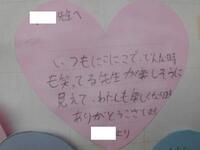 先生へ
いつもにこにこで、どんな時
も笑ってる先生が楽しそうに
見えて、わたしも楽しくなります
ありがとうございます
より